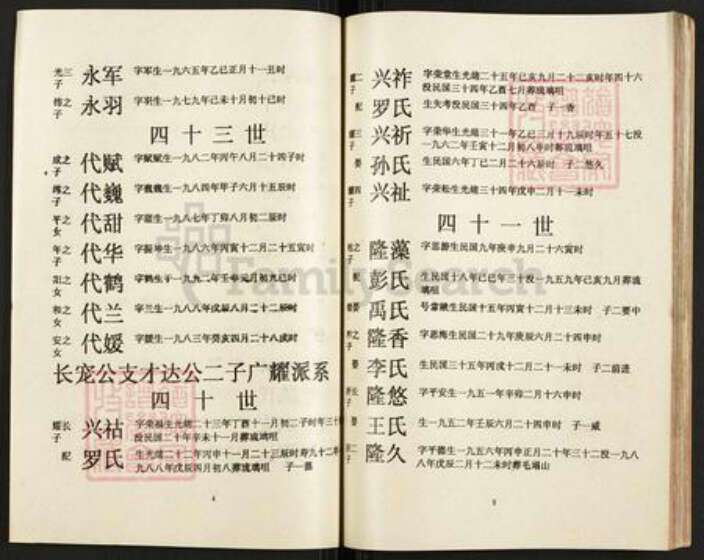 光三子 永军 字军生一九六五年乙巳正月十一丑时
之子 永羽 字羽生一九七九年己未十月初十巳时
四十三世
成之子 代赋 字赋赋生一九八二年丙午八月二十四子时
之子 代巍 字巍巍生一九八四年甲子六月十五辰时
平之女 代甜 字甜生一九八七年丁卯八月初二辰时
年之子 代华 字振坤生一九八六年丙寅十二月二十五寅时
阳之女 代鹤 字鹤生于一九九二年壬申元月初九巳时
和之女 代兰 字兰生一九八八年戊辰八月二十二辰时
安之女 代媛 字媛生一九八三年癸亥四月二十八戌时
长宠公支才达公二子广耀派系
四十世
耀长子 兴祜 字荣福生光绪二十三年丁酉十一月初二子时年三十
没民国二十年辛未十一月葬琉璃咀
配 罗氏 生光绪二十二年丙申十一月二十三辰时寿九十二
八八年戊辰四月初八葬琉璃咀 子一
4
耀二子 兴祚 字荣堂生光绪二十五年己亥九月二十二亥时年四十六
没民国三十四年乙酉七月葬琉璃咀
配 罗氏 生失考没民国三十四年乙酉 子一香
耀三子 兴祈 字荣华生光绪三十一年乙巳三月十九辰时年五十七没
一九六二年壬寅十二月初八午时葬琉璃咀
娶 孙氏 生民国六年丁巳二月二十六辰时 子二悠久
耀四子 兴祉 字荣松生光绪三十四年戊申二月十一未时
四十一世
之子 隆藻 字思游生民国九年庚申九月二十六寅时
配 彭氏 生民国十八年己巳年三十没一九五九年己亥九月葬琉
璃咀
娶 禹氏 号常敏生民国十五年丙寅十二月十三未时 子二要中
之子 隆香 字思梅生民国二十九年庚辰六月二十四申时
娶 李氏 生民国三十五年丙戌十二月二十一未时 子二前进
长子 隆悠 字平安生一九五一年辛卯二月十六申时
娶 王氏 生一九五二年壬辰六月二十四申时 子一威
二子 隆久 字平德生一九五六年丙申正月二十年三十二没一九八
八年戊辰二月十二未时葬毛塌山
5
FamilySearch